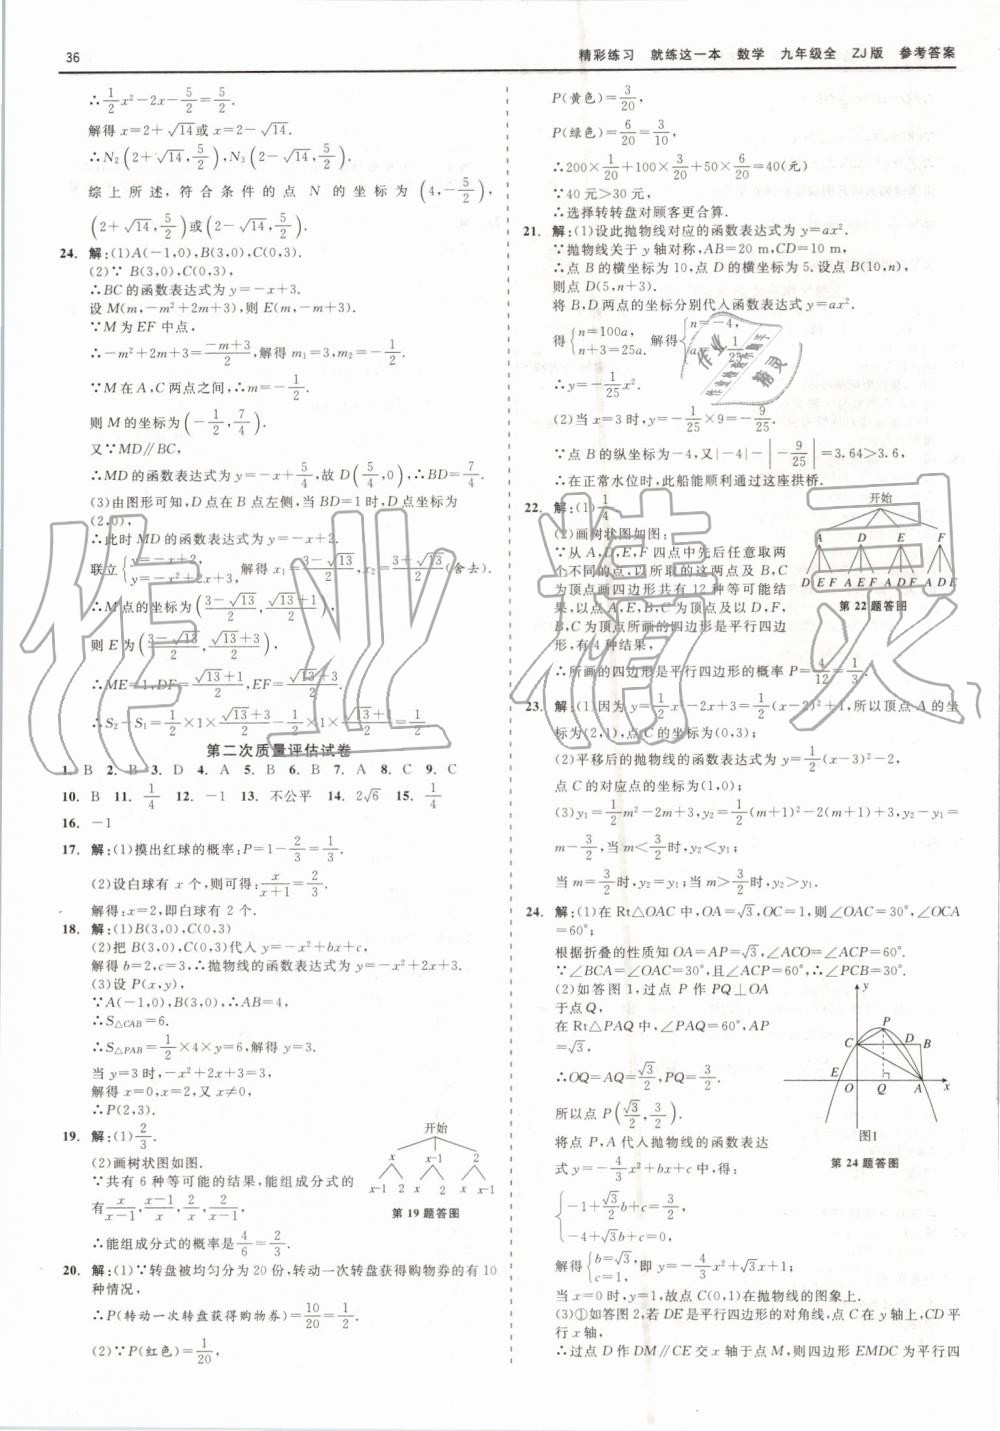 36
精彩练习 就练这一本 数学 九年级全 ZJ版 参考答案
∴1/2x²-2x-5/2=5/2.
解得 x=2+√14或 x=2-√14.
∴N₂(2+√14,5/2),N₃(2-√14,5/2).
综上所述,符合条件的点 N 的坐标为(4,-5/2),
(2+√14,5/2)或(2-√14,5/2).
24. 解:(1)A(-1,0),B(3,0),C(0,3).
(2)∵B(3,0),C(0,3),
∴BC的函数表达式为 y=-x+3.
设 M(m,-m²+2m+3),则 E(m,-m+3).
∵M为EF中点,
∴-m²+2m+3=(-m+3)/2,解得 m₁=3,m₂=-1/2.
∵M在A,C两点之间,∴m=-1/2.
则 M的坐标为(-1/2,7/4).
又∵MD∥BC,
∴MD的函数表达式为 y=-x+5/4,故 D(5/4,0),∴BD=7/4.
(3)由图形可知,D点在B点左侧,当BD=1时,D点坐标为
(2,0),
∴此时 MD的函数表达式为 y=-x+2.
联立{y=-x+2, y=-x²+2x+3, 解得 x₁=(3-√13)/2,x₂=(3+√13)/2(舍去).
∴M点的坐标为((3-√13)/2,(√13+1)/2)
则 E为((3-√13)/2,(√13+3)/2).
∴ME=1,DF=(√13+1)/2,EF=(√13+3)/2.
∴S₂-S₁=1/2×1×(√13+3)/2-1/2×1×(√13+1)/2=1/2.
第二次质量评估试卷
1. B 2. B 3. D 4. A 5. B 6. B 7. A 8. C 9. C
10. B 11. 1/4 12. -1 13. 不公平 14. 2√6 15. 1/4
16. -1
17. 解:(1)摸出红球的概率:P=1-2/3=1/3.
(2)设白球有 x 个,则可得:x/(x+1)=2/3.
解得:x=2,即白球有 2 个.
18. 解:(1)B(3,0),C(0,3)
(2)把 B(3,0),C(0,3)代入 y=-x²+bx+c,
解得 b=2,c=3,∴抛物线的函数表达式为 y=-x²+2x+3.
(3)设 P(x,y),
∵A(-1,0),B(3,0),∴AB=4,
∴S△CAB=6.
∴S△PAB=1/2×4×y=6,解得 y=3.
当 y=3时,-x²+2x+3=3,
解得 x=0,x=2,又 x≠0,
∴P(2,3).
19. 解:(1)2/3.
(2)画树状图如图.
∵共有 6 种等可能的结果,能组成分式的
有x/(x-1),(x-1)/x,2/x,2/(x-1),
∴能组成分式的概率是4/6=2/3.
开始
x x-1 2
x-1 2 x 2 x x-1
第19题答图
20. 解:(1)∵转盘被均匀分为 20 份,转动一次转盘获得购物券的有 10
种情况,
∴P(转动一次转盘获得购物券)=10/20=1/2.
(2)∵P(红色)=1/20,
P(黄色)=3/20,
P(绿色)=6/20=3/10,
∴200×1/20+100×3/20+50×6/20=40(元)
∵40 元>30 元,
∴选择转转盘对顾客更合算.
21. 解:(1)设此抛物线对应的函数表达式为 y=ax².
∵抛物线关于 y 轴对称,AB=20 m,CD=10 m,
∴点 B 的横坐标为 10,点 D 的横坐标为 5.设点 B(10,n),
则点 D(5,n+3).
将 B,D 两点的坐标分别代入函数表达式 y=ax².
得{n=100a, n+3=25a. 解得{n=-4, a=-1/25.
∴y=-1/25x².
(2)当 x=3 时,y=-1/25×9=-9/25.
∵点 B 的纵坐标为-4,又|-4|-|-9/25|=3.64>3.6,
∴在正常水位时,此船能顺利通过这座拱桥.
22. 解:(1)1/4
(2)画树状图如图:
∵从 A,D,E,F 四点中先后任意取两
个不同的点,以所取的这两点及 B,C
为顶点画四边形共有 12 种等可能结
果,以点 A,E,B,C 为顶点及以 D,F,
B,C 为顶点所画的四边形是平行四边
形,有 4 种结果,
∴所画的四边形是平行四边形的概率 P=4/12=1/3.
开始
A D E F
D E F A E F A D F A D E
第22题答图
23. 解:(1)因为 y=1/2x²-2x+3=1/2(x-2)²+1,所以顶点 A 的坐
标为(2,1),点 C 的坐标为(0,3);
(2)平移后的抛物线的函数表达式为 y=1/2(x-3)²-2,
点 C 的对应点的坐标为(1,0);
(3)y₁=1/2m²-2m+3,y₂=1/2(m+1)²-2(m+1)+3,y₂-y₁=
m-3/2,当 m<3/2时,y₂<y₁;
当 m=3/2时,y₂=y₁;当 m>3/2时,y₂>y₁.
24. 解:(1)在 Rt△OAC 中,OA=√3,OC=1,则∠OAC=30°,∠OCA
=60°;
根据折叠的性质知 OA=AP=√3,∠ACO=∠ACP=60°.
∵∠BCA=∠OAC=30°,且∠ACP=60°,∴∠PCB=30°.
(2)如答图 1,过点 P 作 PQ⊥OA
于点 Q,
在 Rt△PAQ 中,∠PAQ=60°,AP
=√3,
∴OQ=AQ=√3/2,PQ=3/2.
所以点 P(√3/2,3/2).
将点 P,A 代入抛物线的函数表达
式 y=-4/3x²+bx+c 中,得:
{-1+√3/2b+c=3/2,
-4+√3b+c=0,
解得{b=√3, c=1, 即 y=-4/3x²+√3x+1;
当 x=0 时,y=1,故点 C(0,1)在抛物线的图象上.
(3)①如答图 2,若 DE 是平行四边形的对角线,点 C 在 y 轴上,CD 平
行 x 轴,
∴过点 D 作 DM∥CE 交 x 轴于点 M,则四边形 EMDC 为平行四
y P C D B E O Q A x
图1
第24题答图
作业精灵